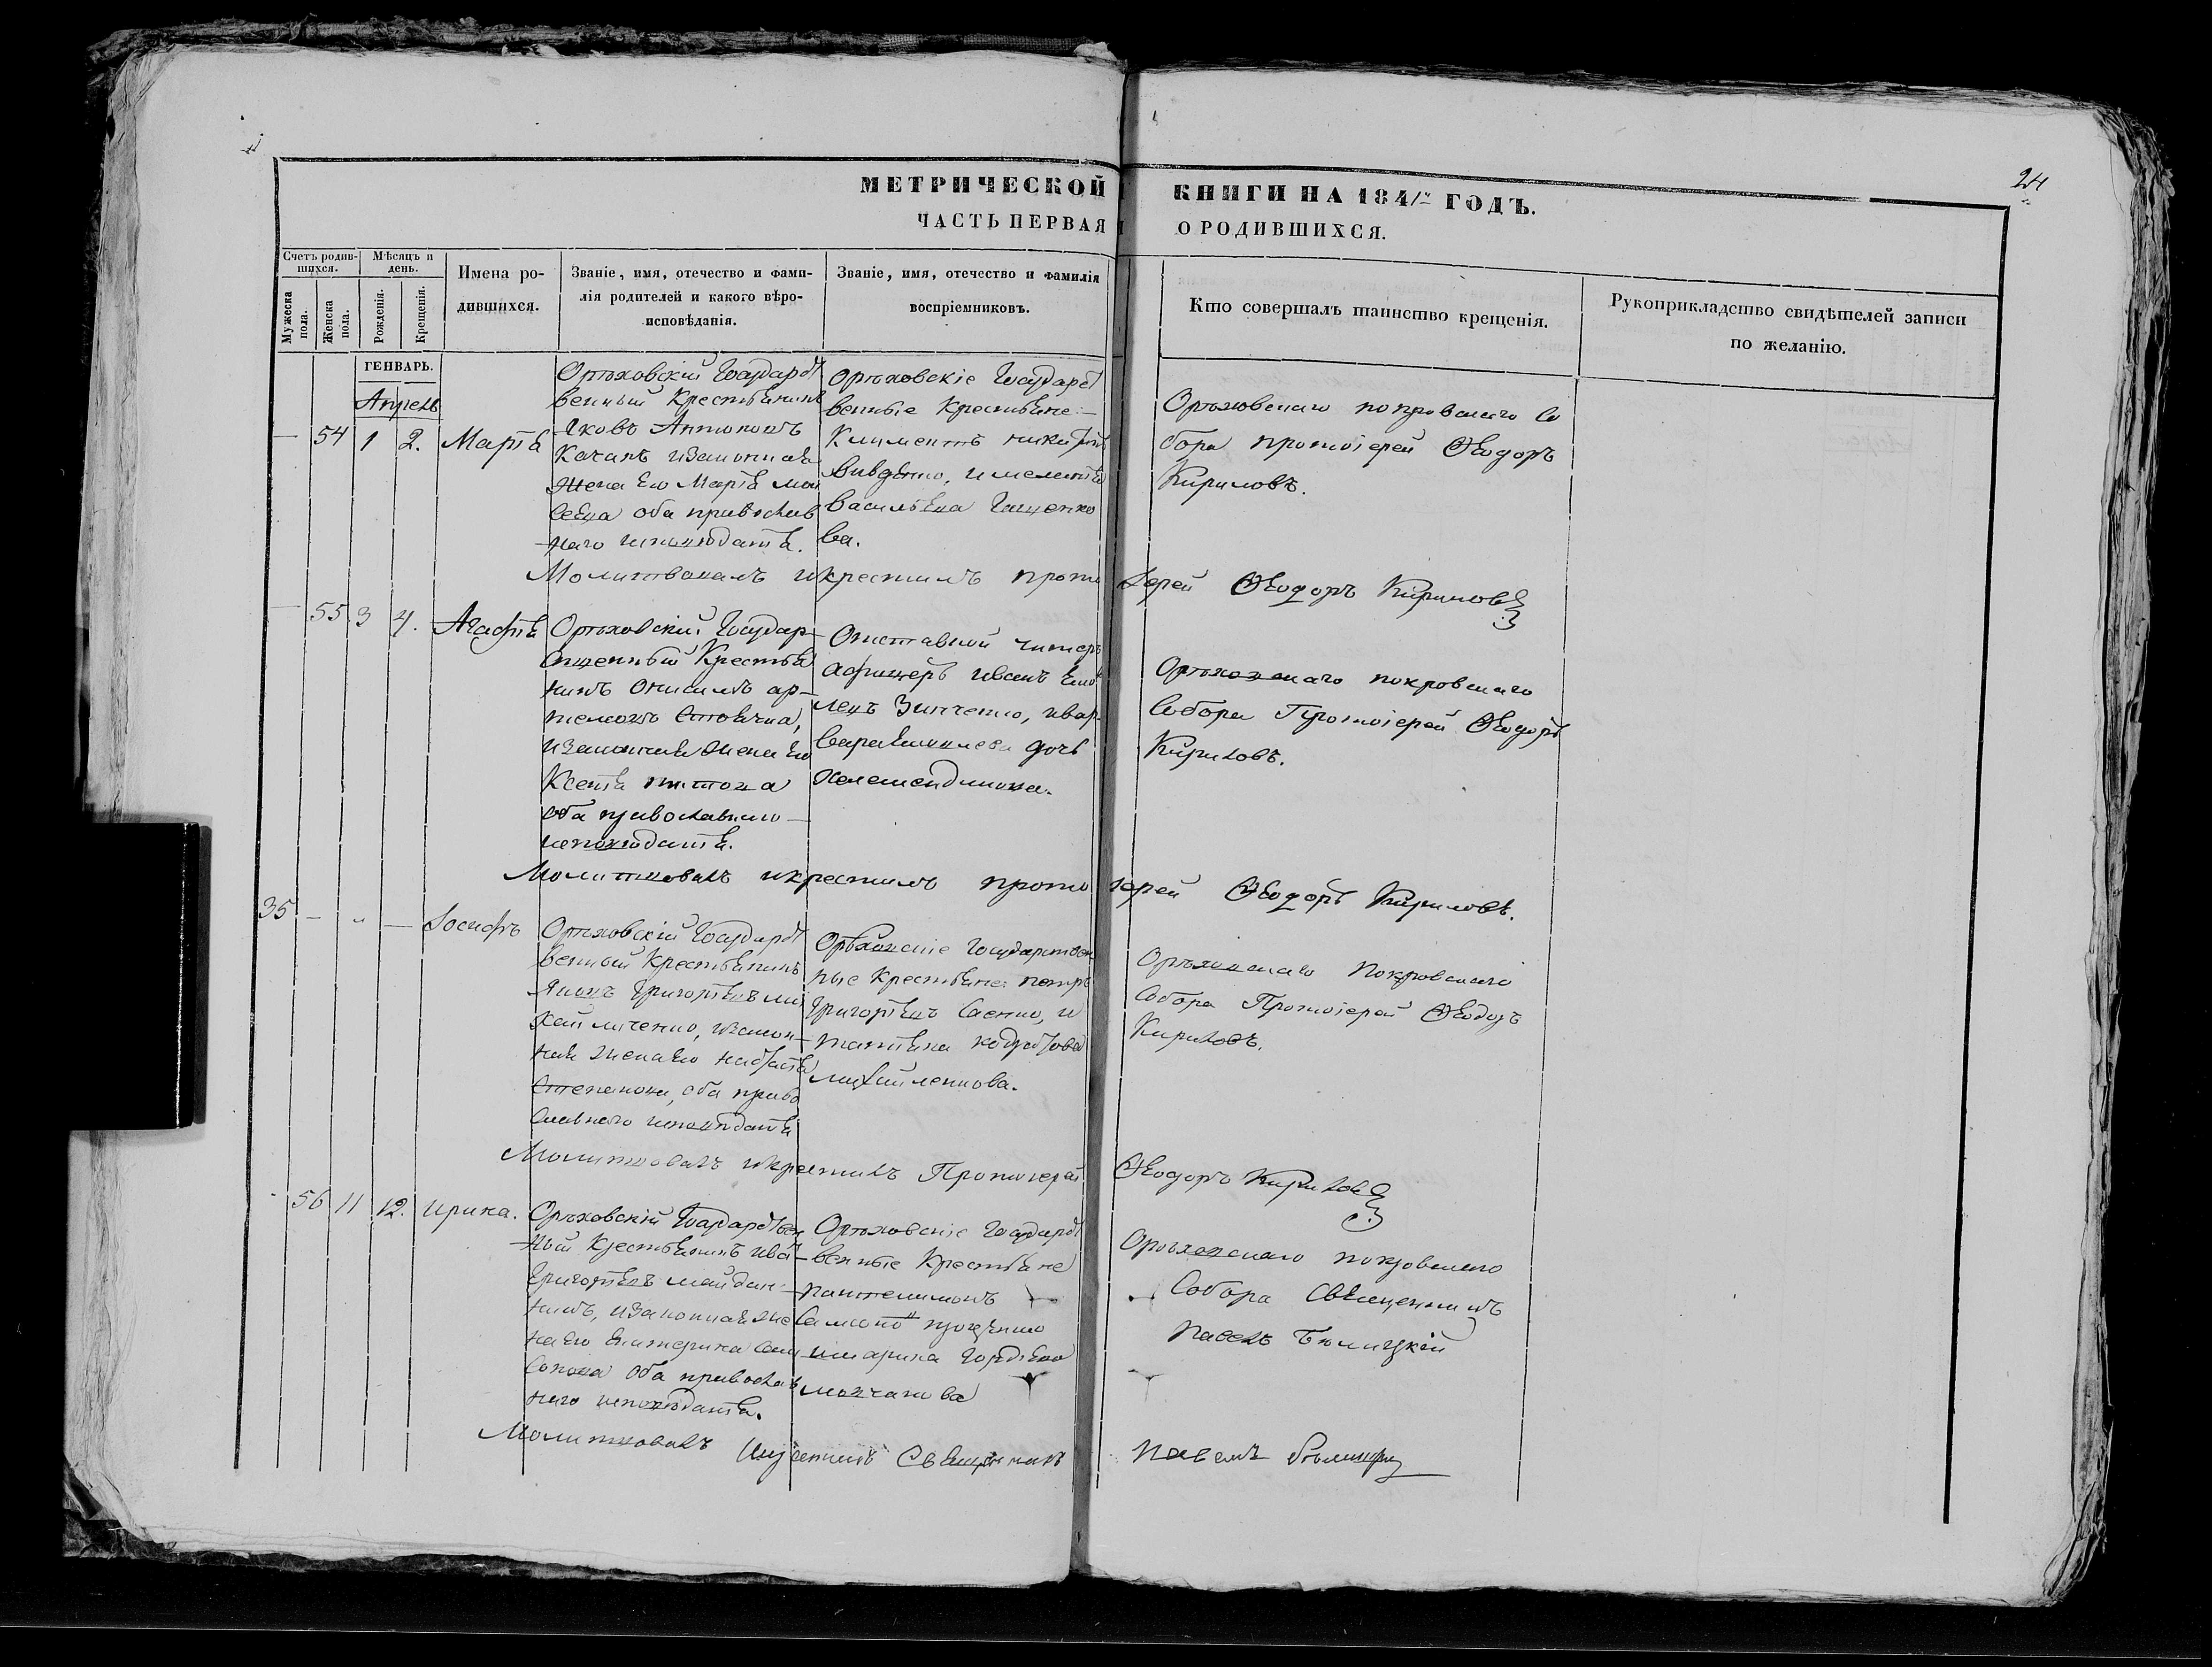 24
МЕТРИЧЕСКОЙ КНИГИ НА 1841й ГОДЪ.
ЧАСТЬ ПЕРВАЯ О РОДИВШИХСЯ.
Счетъ родившихся.
Мужеска пола.
Женска пола.
Мѣсяцъ и день.
Рожденія.
Крещенія.
Имена родившихся.
Званіе, имя, отечество и фами-
лія родителей и какого вѣро-
исповѣданія.
Званіе, имя, отечество и фамилія
воспріемниковъ.
Кто совершалъ таинство крещенія.
Рукоприкладство свидѣтелей записи
по желанію.
ГЕНВАРЬ.
Апрель
— 54 1 2. Марѳа
Орѣховскій Государст
венный Крестьянинъ
Яковъ Антоновъ
Качанъ изаконная
жена его Марѳа
оба православ
наго исповѣданія.
Орѣховскіе Государст
венные Крестьяне
Климентъ
Васильева
ва.
Орѣховскаго покровскаго Со
бора протоіерей Ѳеодоръ
Кириловъ.
Молитвовалъ икрестилъ протоіерей Ѳеодоръ Кириловъ
— 55 3 4. Агафія
Орѣховскій Государ-
ственный Крестья
нинъ Онисимъ ар-
темовъ
изаконная жена его
Ксенія титова
оба православнаго
исповѣданія.
Отставной унтеръ
афицеръ иванъ
Зинченко, ивар
вара дочь
Орѣховскаго покровскаго
Собора Протоіерей Ѳеодоръ
Кириловъ.
Молитвовалъ икрестилъ протоіерей Ѳеодоръ Кириловъ.
35 — " — Іосифъ
Орѣховскій Государст
венный Крестьянинъ
Григорьевъ ми
хайличенко, изакон
ная жена его
Степанова, оба право
славнаго исповѣданія
Орѣховскіе Государствен
ные Крестьяне: петръ
Григорьевъ Саенко, и
татіана
михайленкова.
Орѣховскаго Покровскаго
Собора Протоіерей Ѳеодоръ
Кириловъ.
Молитвовалъ икрестилъ Протоіерей Ѳеодоръ Кириловъ
56 11 12. ирина.
Орѣховскій Государствен
ный Крестьянинъ иванъ
Григорьевъ майдан
никъ, изаконная же
на его Екатерина
оба православ
наго исповѣданія.
Орѣховскіе Государст
венные Крестьяне
пантелимонъ
имарина
молчанова
Орѣховскаго покровскаго
Собора Священникъ
Павелъ Бѣлицкій
Молитвовалъ икрестилъ Священникъ Павелъ Бѣлицкій